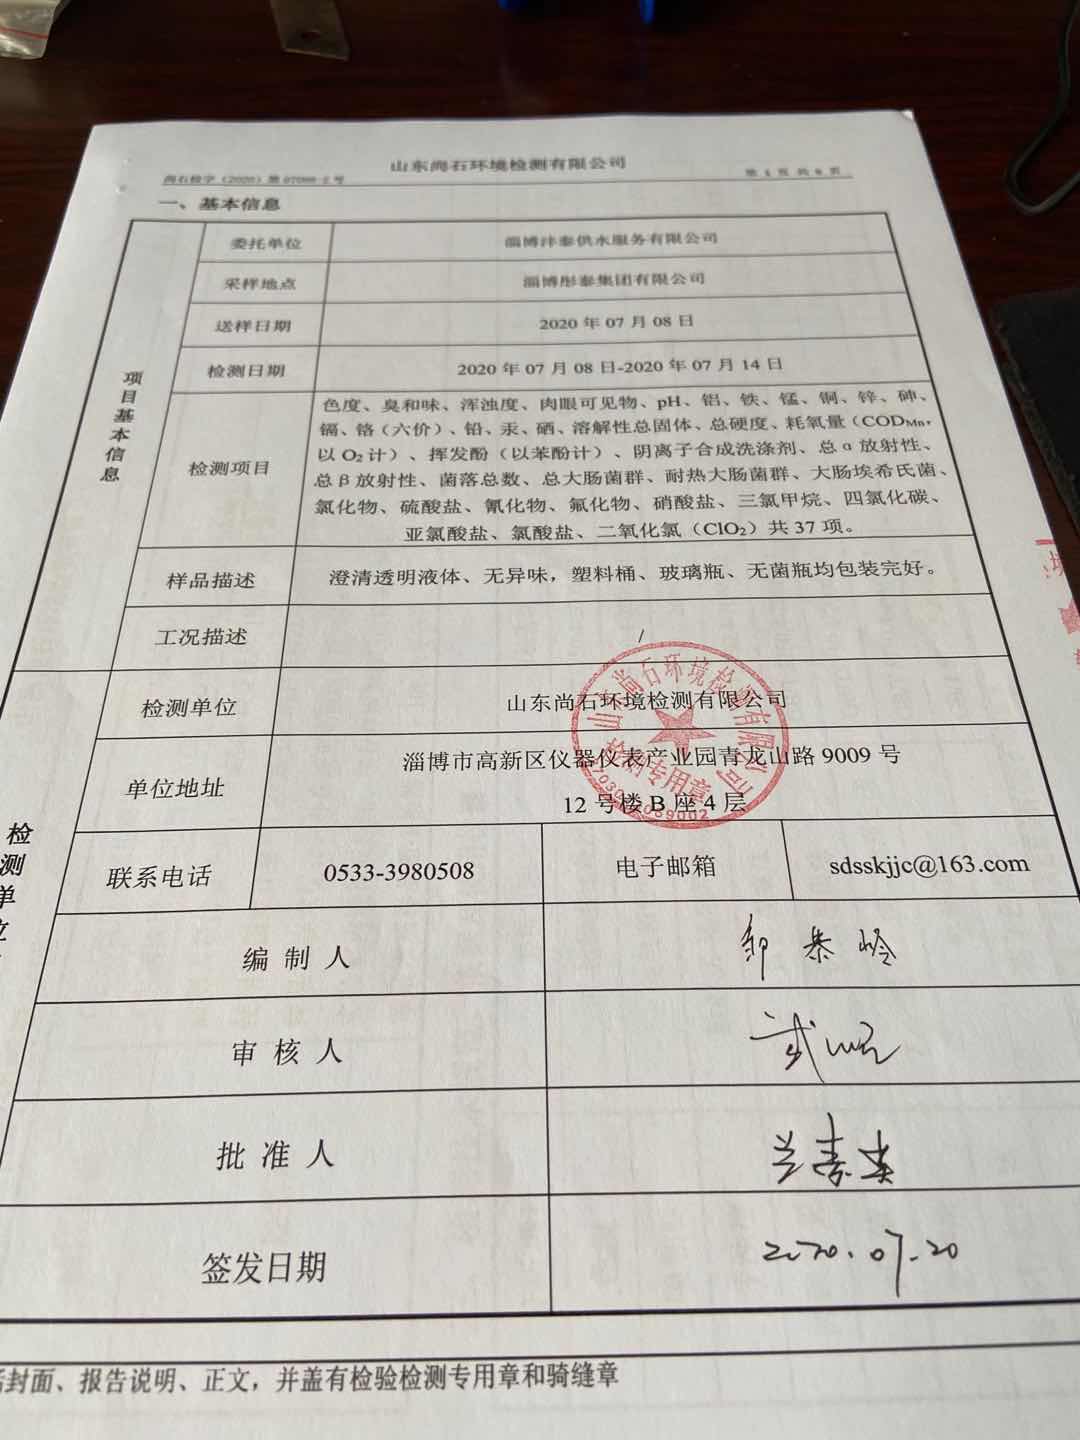 山东尚石环境检测有限公司
尚石检字（2020）第
一、基本信息
项目基本信息
委托单位 淄博沣泰供水服务有限公司
采样地点 淄博彤泰集团有限公司
送样日期 2020 年 07 月 08 日
检测日期 2020 年 07 月 08 日-2020 年 07 月 14 日
检测项目
色度、臭和味、浑浊度、肉眼可见物、pH、铝、铁、锰、铜、锌、砷、
镉、铬（六价）、铅、汞、硒、溶解性总固体、总硬度、耗氧量（CODMn，
以 O2 计）、挥发酚（以苯酚计）、阴离子合成洗涤剂、总 α 放射性、
总 β 放射性、菌落总数、总大肠菌群、耐热大肠菌群、大肠埃希氏菌、
氯化物、硫酸盐、氰化物、氟化物、硝酸盐、三氯甲烷、四氯化碳、
亚氯酸盐、氯酸盐、二氧化氯（ClO2）共 37 项。
样品描述 澄清透明液体、无异味，塑料桶、玻璃瓶、无菌瓶均包装完好。
工况描述 /
检测单位
检测单位 山东尚石环境检测有限公司
单位地址 淄博市高新区仪器仪表产业园青龙山路 9009 号
12 号楼 B 座 4 层
联系电话 0533-3980508 电子邮箱 sdsskjjc@163.com
编 制 人
审 核 人
批 准 人
签发日期 2020.07.20
封面、报告说明、正文，并盖有检验检测专用章和骑缝章
山东尚石环境检测有限公司
检测专用章